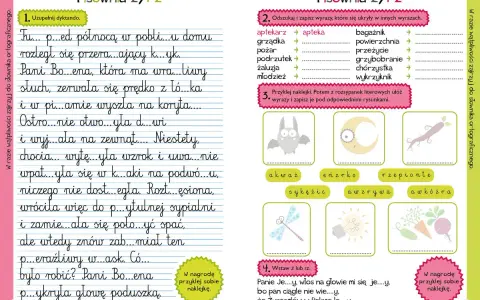 Pisownia ż, rz
1. Uzupełnij dyktando.
Tu... p...ed północą w pobli...u domu
rozległ się przera...ający k...yk.
Pani Bo...ena, która ma wra...liwy
słuch, zerwała się prędko z łó...ka
i w pi...amie wyszła na koryta....
Ostro...nie otwo...yła d...wi
i wyj...ała na zewnąt.... Niestety,
chocia... wytę...yła wzrok i uwa...nie
wpat...yła się w k...aki na podwó...u,
niczego nie dost...egła. Rozt...ęsiona,
wróciła więc do p...ytulnej sypialni
i zamie...ała się poło...yć spać,
ale wtedy znów zab...miał ten
p...eraźliwy w...ask. Co...
było robić? Pani Bo...ena
p...ykryła głowę poduszką
W nagrodę
przyklej sobie
naklejkę.
W razie wątpliwości zajrzyj do słownika ortograficznego.
Pisownia ż, rz
2. Odszukaj i zapisz wyrazy, które się ukryły w innych wyrazach.
aptekarz → apteka
grządka →
pożar →
podmurtek →
żaluzja →
młodzież →
bagażnik →
powierzchnia →
przeżycie →
grzybobranie →
chórzystka →
wykrzyknik →
3. Przyklej naklejki. Potem z rozsypanek literowych ułóż
wyrazy i zapisz je pod odpowiednimi rysunkami.
4. Wstaw ż lub rz.
Panie Je...y, włos na głowie mi się je...y,
bo pan ciągle nie wie...y,
W nagrodę
przyklej sobie
naklejkę.
W razie wątpliwości zajrzyj do słownika ortograficznego.